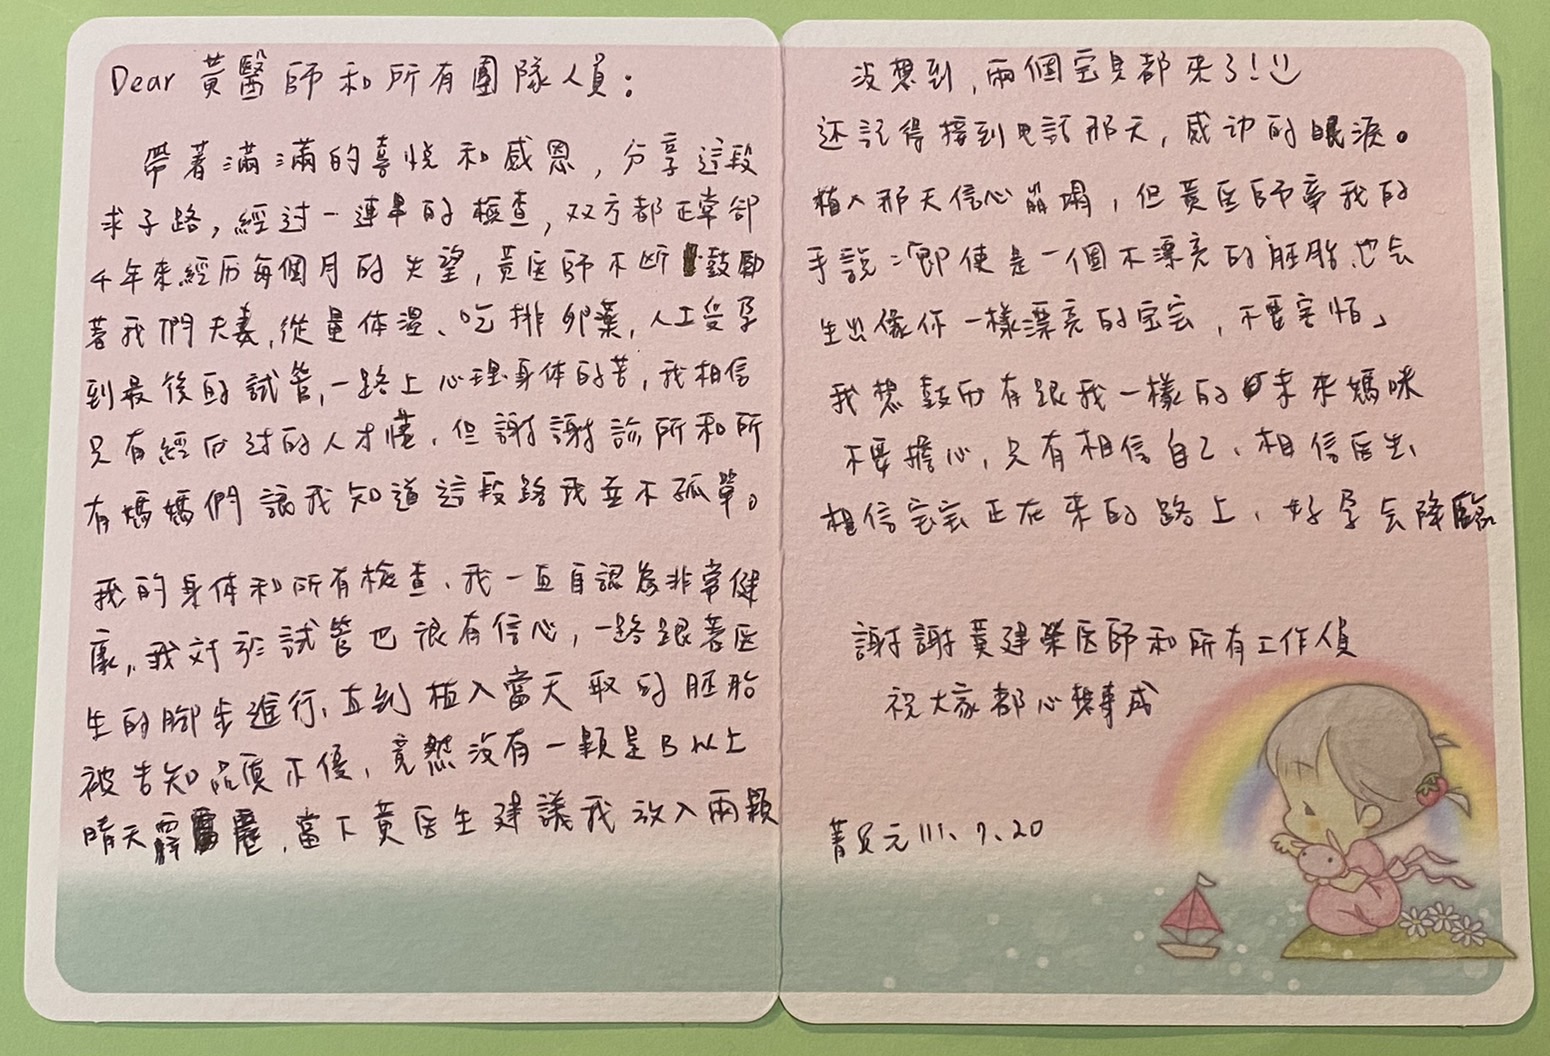 Dear 黃醫師和所有團隊人員：
帶著滿滿的喜悅和感恩，分享這段
求子路，經过一連串的檢查，双方都正常卻
4年來經历每個月的失望，黃医師不断鼓勵
著我們夫妻，從量体温、吃排卵藥，人工受孕
到最後的試管，一路上心理身体的苦，我相信
只有經历过的人才懂，但謝謝診所和所
有媽媽們讓我知道這段路我並不孤單。
我的身体和所有檢查，我一直自認為非常健
康，我对於試管也很有信心，一路跟著医
生的腳步進行，直到植入當天取的胚胎
被告知品質不優，竟然沒有一顆是B以上
晴天霹靂，當下黃医生建議我放入兩顆
沒想到，兩個宝貝都來了!
还記得接到电話那天，感动的眼淚。
植入那天信心崩塌，但黃医師牽我的
手說：「即使是一個不漂亮的胚胎也会
生出像你一樣漂亮的宝宝，不要害怕」
我想鼓历有跟我一樣的未來媽咪
不要擔心，只有相信自己、相信医生、
相信宝宝正在來的路上，好孕会降臨
謝謝黃建榮医師和所有工作人員
祝大家都心想事成
111、7、20